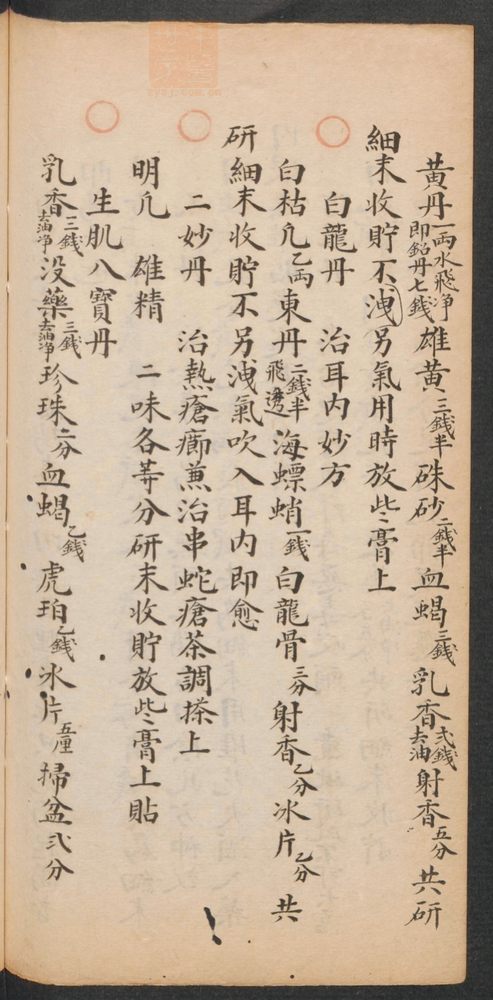 黃丹一両水飛净即鉛丹七錢雄黃三錢半硃砂二錢半血蝎三錢乳香弍錢去油射香五分共研
細末收貯不洩另氣用時放些膏上
白龍丹　治耳内妙方
白枯凢乙両東丹二錢半飛透海螵蛸一錢白龍骨三分射香乙分冰片乙分共
研細末收貯不另洩氣吹入耳内即愈
二妙丹　治熱瘡癤兼治串蛇瘡茶調搽上
明凢　雄精　二味各等分研末收貯放些膏上貼
生肌八寶丹
乳香三錢去油净没藥三錢去油净珍珠二分血蝎乙錢虎珀乙錢氷片五厘掃盆弍分